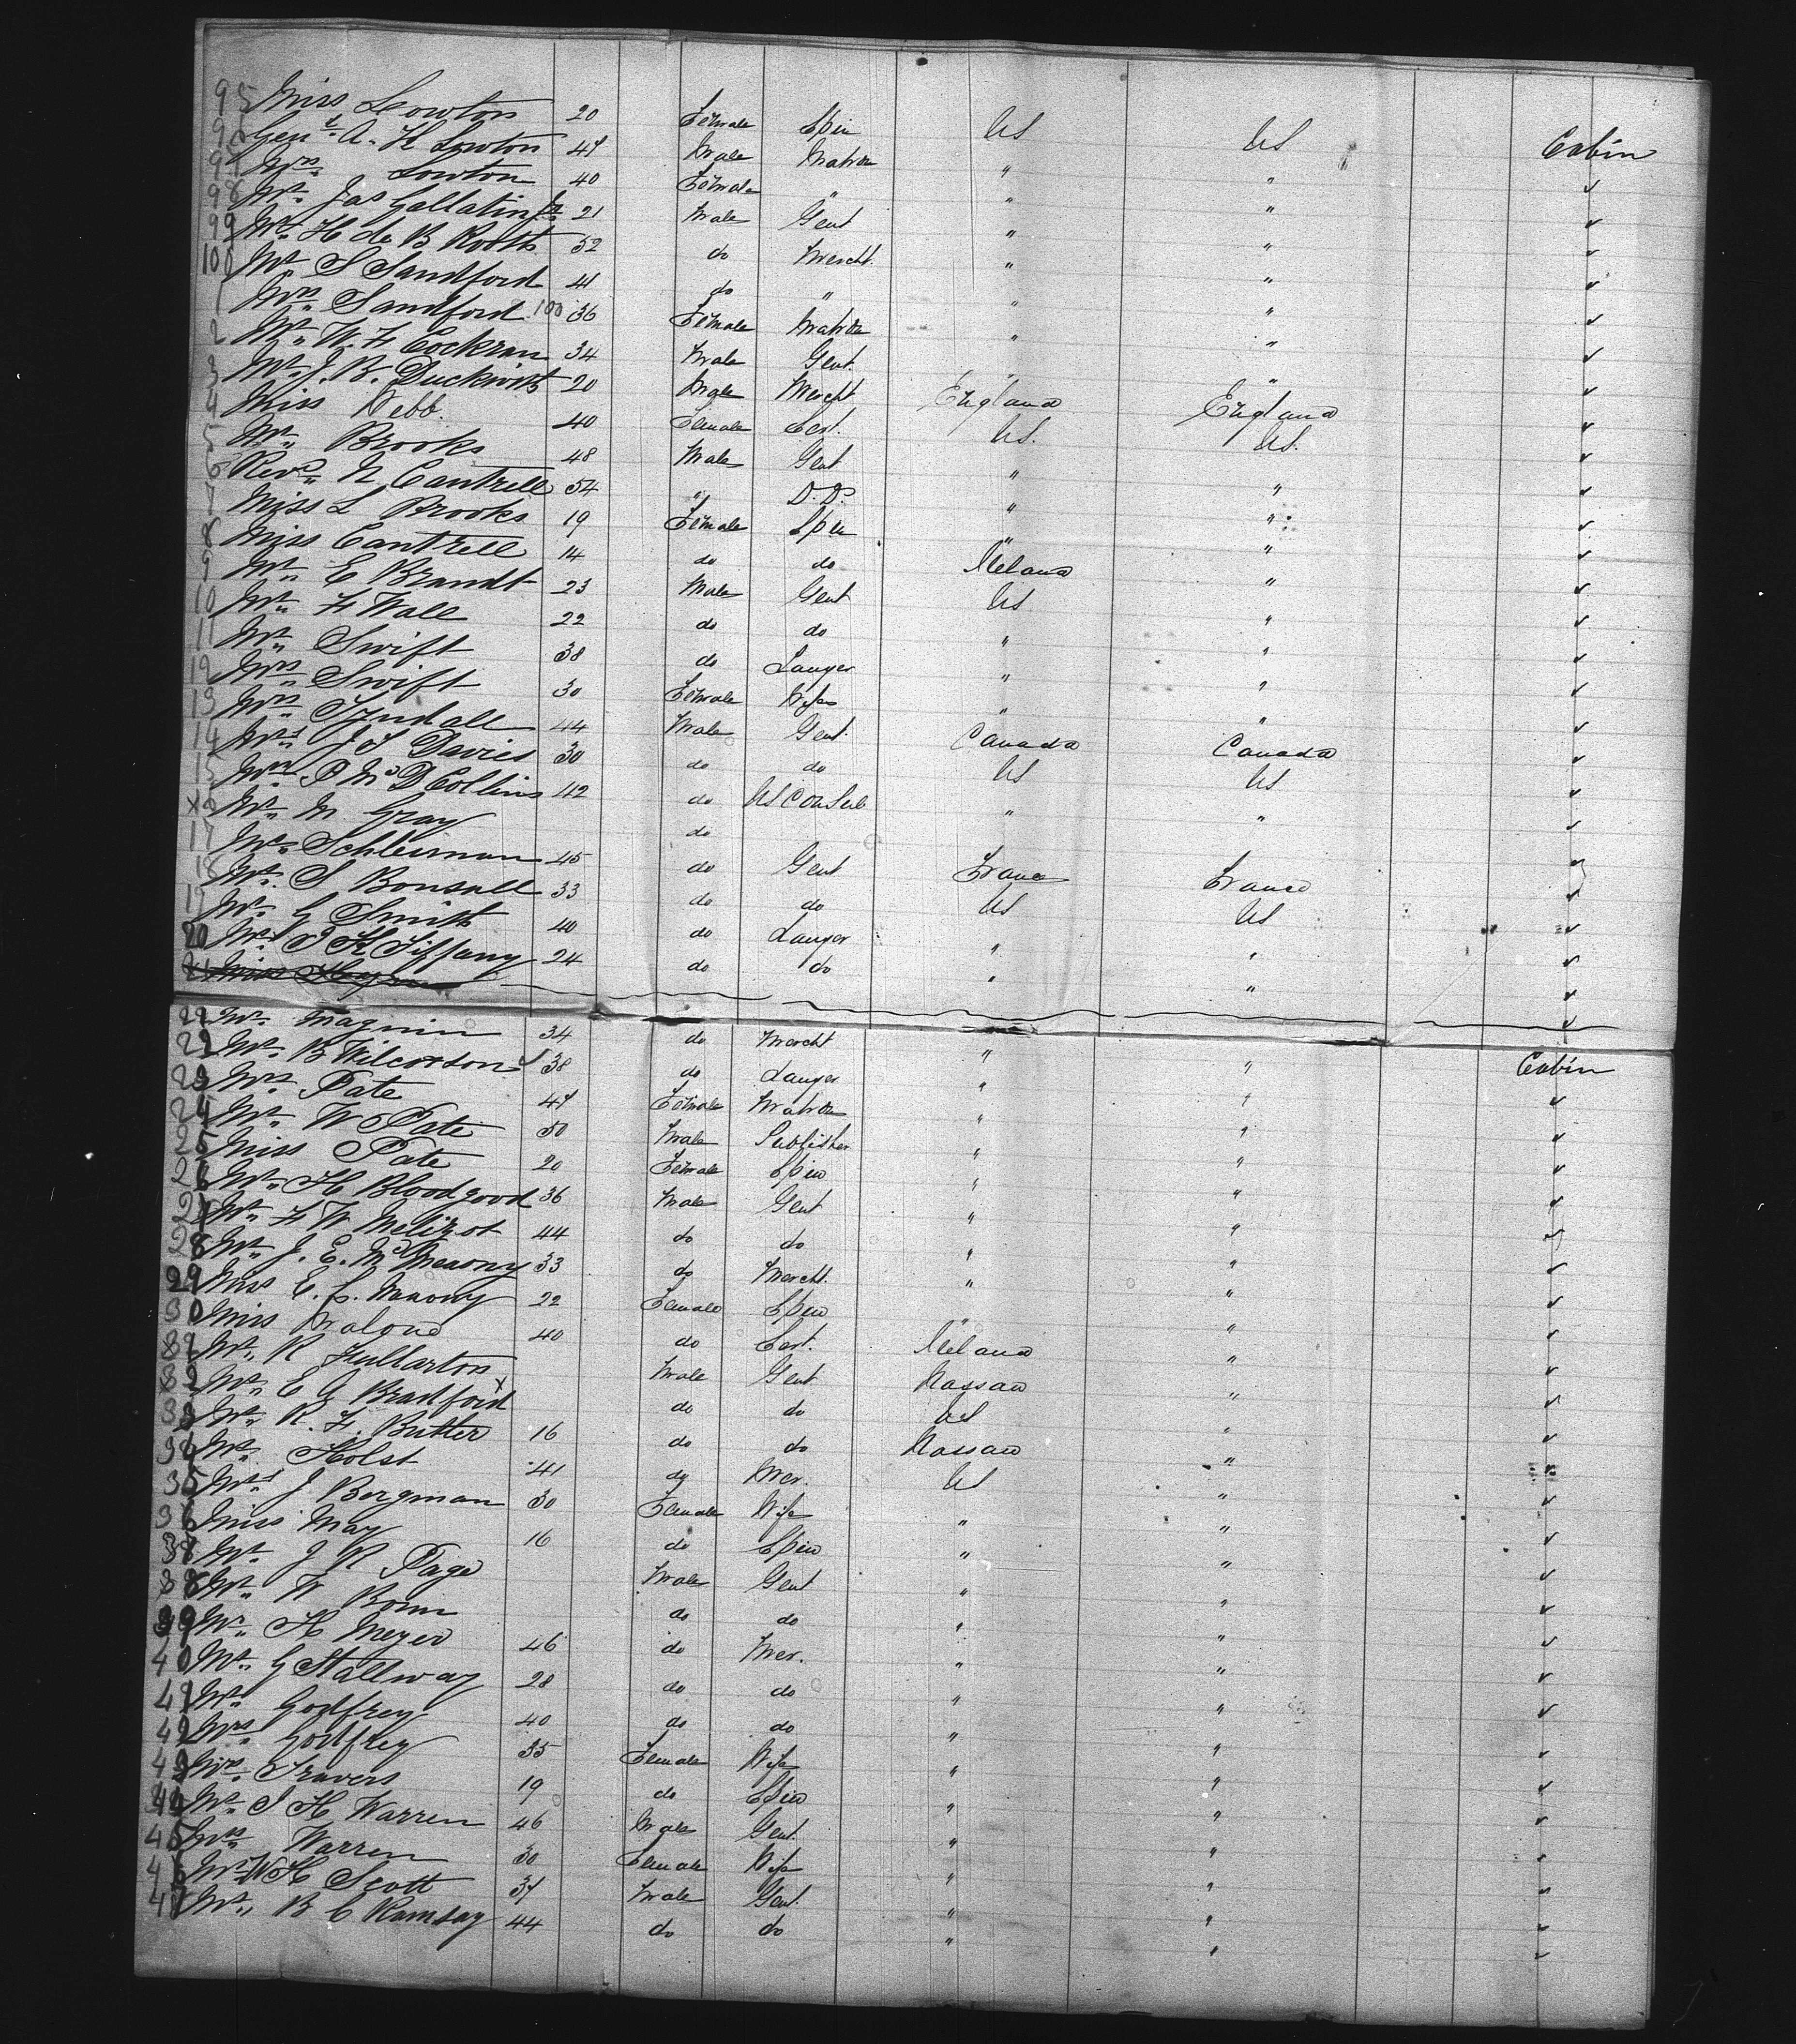 95 Miss Lowton 20 Female Spin US US Cabin
96 Genl A. K Lowton 47 Male Matron " " ✓
97 Mrs Lowton 40 Female " " " ✓
98 Mr Jas Gallatin Jr 21 Male Gent " " ✓
99 Mr H de B Routh 52 do Mercht. " " ✓
100 Mr S Sandford 41 do " " " ✓
1 Mrs Sandford 100 36 Female Matron " " ✓
2 Mr W. F Cockran 34 Male Gent. " " ✓
3 Mr J. B. Duckwitz 20 Male Mercht England England ✓
4 Miss Webb. 40 Female Sert. US. US. ✓
5 Mr Brooks 48 Male Gent " " ✓
6 Revd N Cantrell 54 " D.D. " " ✓
7 Miss L Brooks 19 Female Spin " " ✓
8 Miss Cantrell 14 do do Ireland " ✓
9 Mr E Brandt 23 Male Gent US " ✓
10 Mr F Wall 22 do do " " ✓
11 Mr Swift 38 do Lawyer " " ✓
12 Mrs Swift 30 Female Wife " " ✓
13 Mr Tyndall 44 Male Gent. Canada Canada ✓
14 Mr J S Davies 30 do do US US ✓
15 Mr P McD Collins 42 do US Consul " " ✓
x 16 Mr M Gray do
17 Mr Schleiman 45 do Gent France France ✓
18 Mr S Bonsall 33 do do US US ✓
19 Mr G Smith 40 do Lawyer " " ✓
20 Mr P H Tiffany 24 do do " " ✓
21 Miss
22 Mr Magnin 34 do Mercht " " Cabin
22 Mr B Wilcoxson 38 do Lawyer " " ✓
23 Mrs Pate 47 Female Matron " " ✓
24 Mr W Pate 50 Male Publisher " " ✓
25 Miss Pate 20 Female Spin " " ✓
26 Mr H Bloodgood 36 Male Gent " " ✓
27 Mr F W Melizot 44 do do " " ✓
28 Mr J. E. McMeaony 33 do Mercht. " " ✓
29 Miss E. L. Masony 22 Female Spin " " ✓
30 Miss Malone 40 do Sert. Ireland " ✓
31 Mr R Fullarton Male Gent Nassau " ✓
32 Mr E G Bradford x do do US " ✓
33 Mr R. F. Butler 16 do do Nassau "
34 Mr Holst 41 do Mer. US " ✓
35 Mrs J Bergman 30 Female Wife " " ✓
36 Miss May 16 do Spin " " ✓
37 Mr J R Page Male Gent " " ✓
38 Mr W Bonn do do " " ✓
39 Mr H Meyer 46 do Mer. " " ✓
40 Mr G Stallway 28 do do " " ✓
41 Mr Godfrey 40 do do " " ✓
42 Mrs Godfrey 35 Female Wife " " ✓
43 Mrs Travers 19 do Spin " " ✓
44 Mr S H Warren 46 Male Gent. " "
45 Mrs Warren 30 Female Wife " " ✓
46 Mr W H Scott 37 Male Gent. " " ✓
47 Mr B C Ramsay 44 do do " " ✓